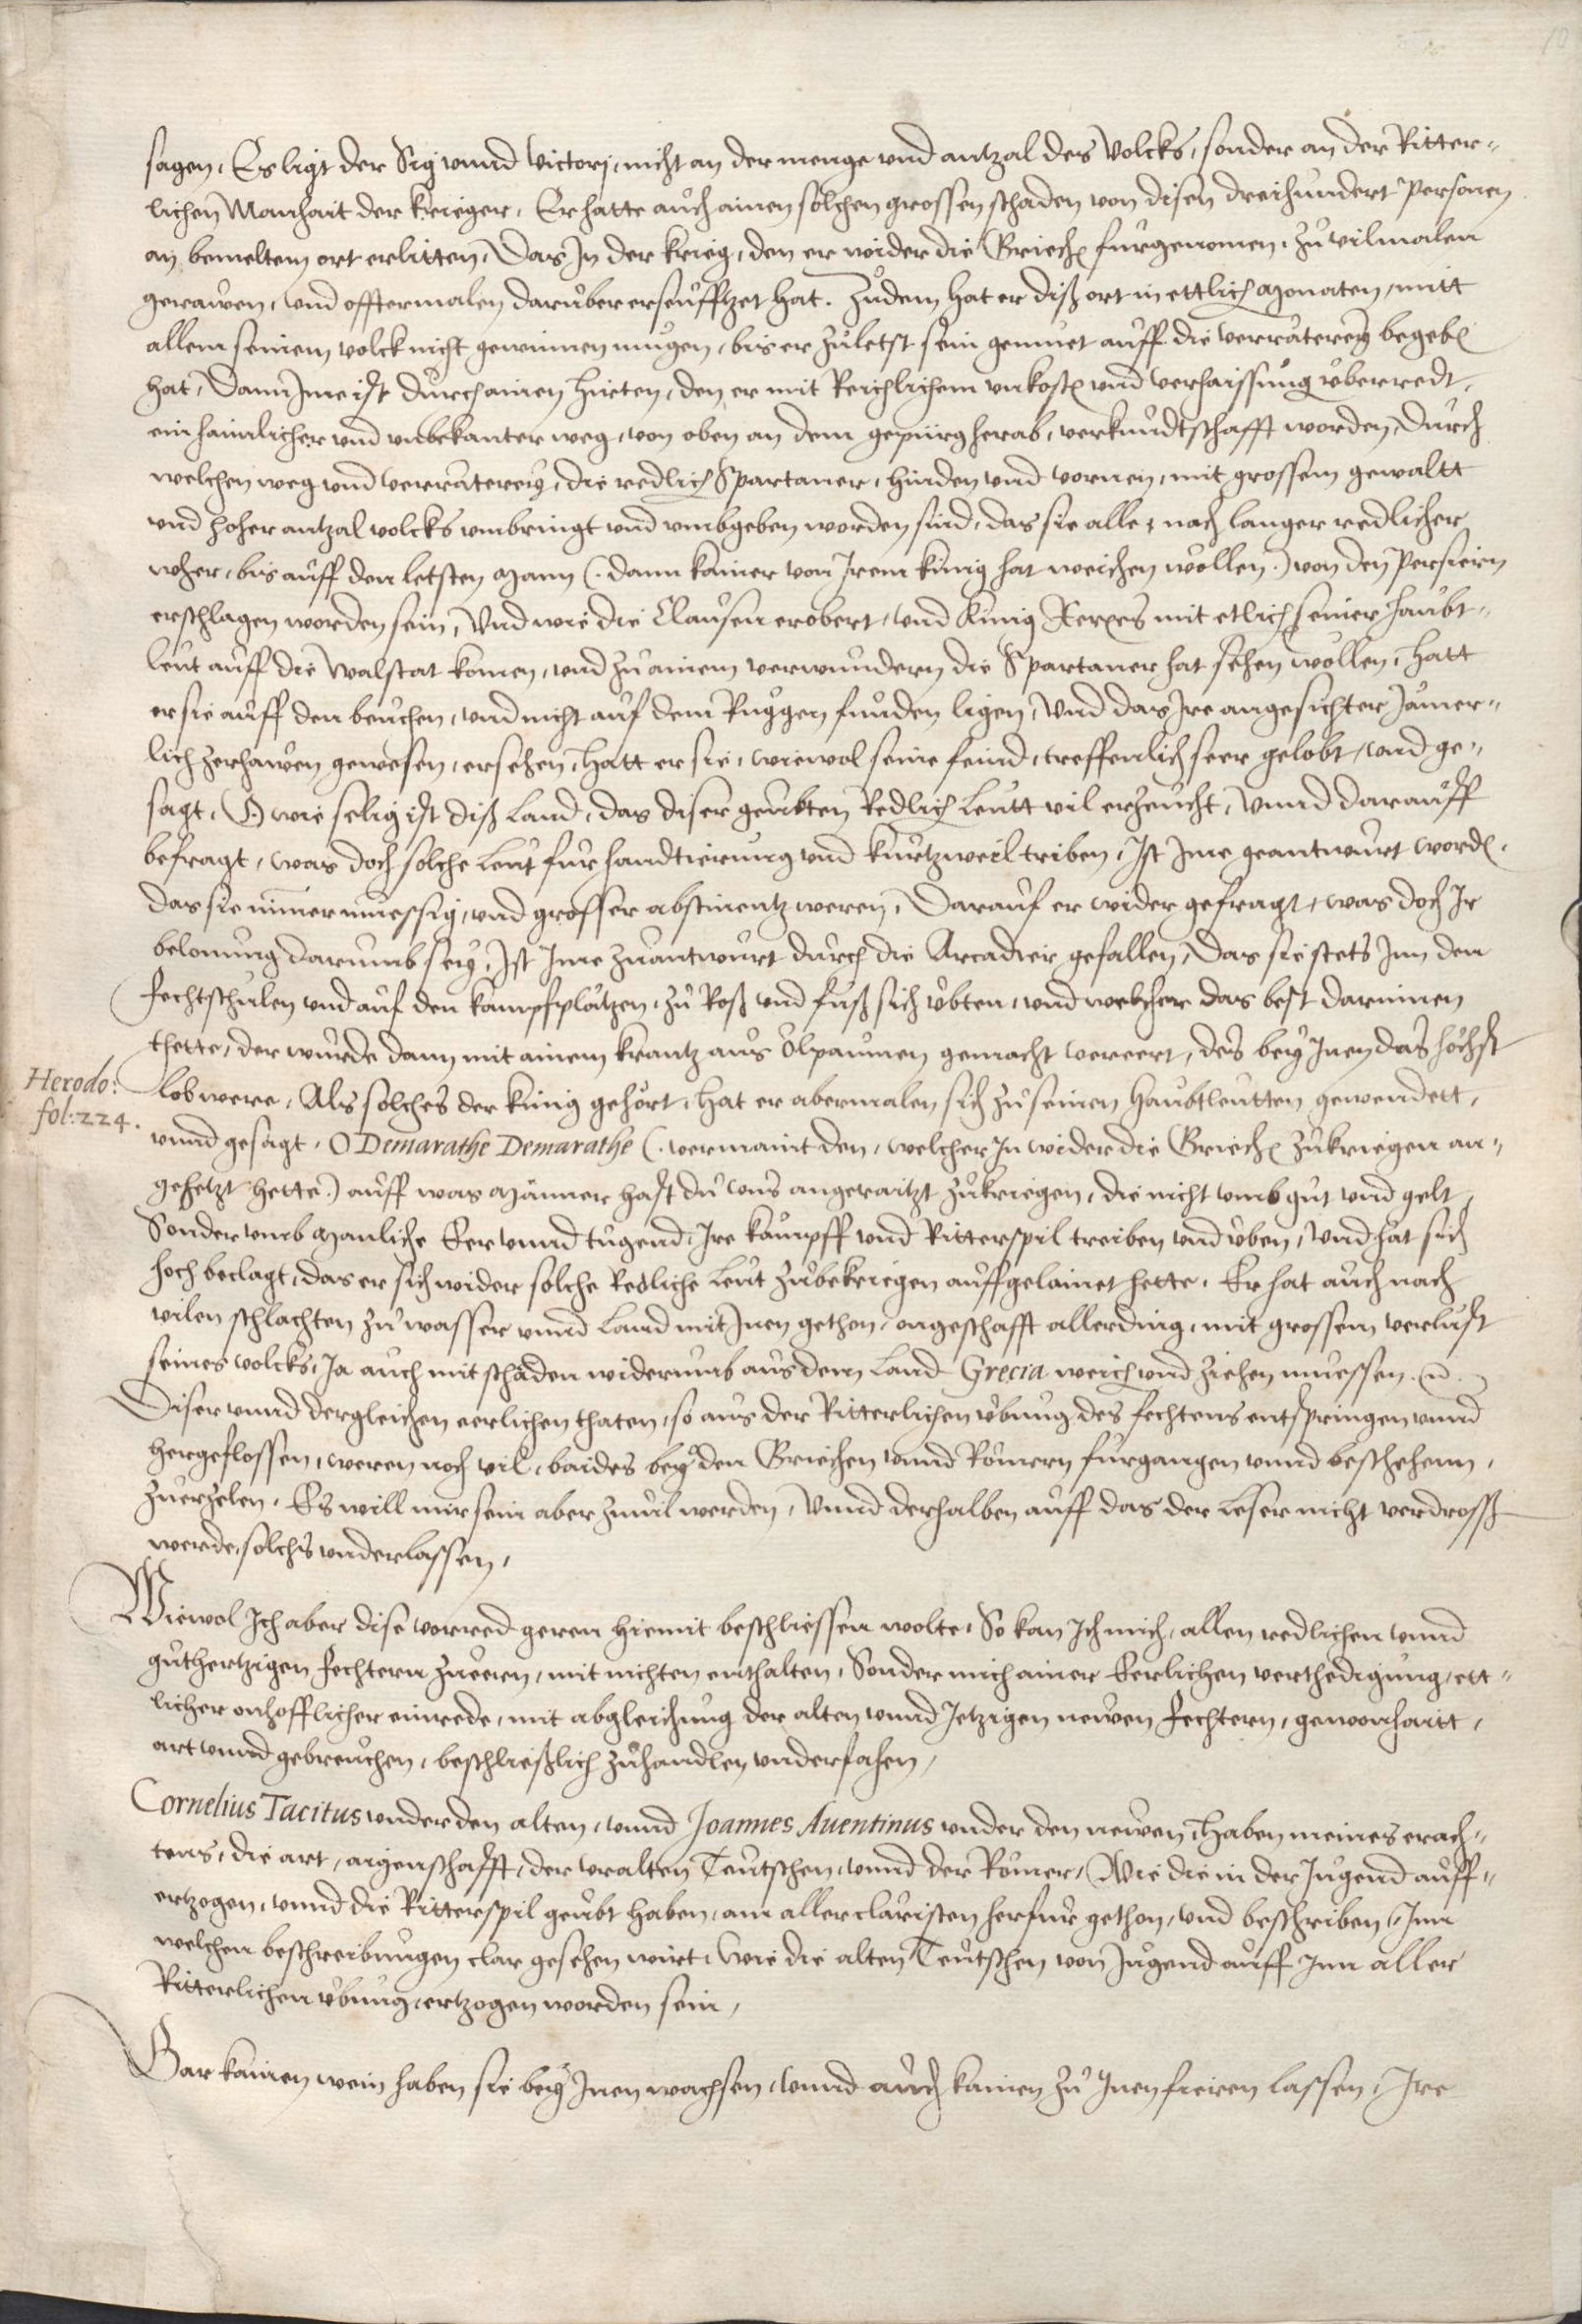 sagen, Es ligt der Sig vnnd victorj, nicht an der menge vnd antzal des Volcks, sonder an der Ritter„
lichen Manhait der krieger, Er hatte auch ainen solchen grossen schaden von disen dreihundert Personen
an bemeltem ort erlitten, Das In der krieg, den er wider die Griech[en] furgenomen, zu vilmalen
gerawen, vnd offtermalen daruber erseufftzet hat. Zudem hat er diß ort in ettlich Monaten, mitt
allem seinem volck nicht gewinnen mugen, bis er zuletst sein gemuet auff die verräterey begeb[en]
hat, Dann Ime ist durch ainen hirten, den er mit Reichlichem vnkost[en] vnd verhaissung vberredt,
ein haimlicher vnd vnbekanter weg, von oben an dem gepürg herab, verkundtschafft worden, Durch
welchen weg vnd verräterey, die redlich Spartaner, hinden vnd vornen, mit grossem gewaltt
vnd hoher antzal volcks vmbringt vnd vmbgeben worden sind, das sie alle, nach langer redlicher
wher, bis auff den letsten Mann (. dann kainer von Irem kunig hat weichen wöllen .) von den Persiern
erschlagen worden sein, Vnd wie die Clausen erobert, vnd Kunig Xerxes mit etlich seiner haubt„
leut auff die walstat komen, vnd zu ainem verwundern die Spartaner hat sehen wöllen, Hatt
er sie auff den beuchen, vnd nicht auf dem Ruggen funden ligen, Vnd das Ire angesichter Jämer„
lich zerhawen gewesen, ersehen, Hatt er sie, wiewol seine feind, treffenlich seer gelobt, vnd ge„
sagt, O wie selig ist diß Land, das diser geubten Redlich Leutt vil erzeucht, Vnnd darauff
befragt, was doch solche Leut fur handtierung vnd kurtzweil triben, Ist Ime geantwurt word[en],
das sie nimer muessig, vnd grosser abstinentz weren, Darauf er wider gefragt, was doch Ir
belonung darumb sey, Ist Ime zuantwurt durch die Arcadier gefallen, Das sie stets Inn den
fechtschulen vnd auf den kampfplätzen, zu Roß vnd fuß sich vbten, vnd welcher das best darinnen
thette, der wurde dann mit ainem krantz aus ölpaumen gemacht vereert, des bey Inen das höchst
Herodo:
fol: 224.
lob were, Als solches der kunig gehört, hat er abermalen sich zu seinen Haubtleutten gewendett,
vnnd gesagt, O Demarathe Demarathe (. vermaint den, welcher In wider die Griech[en] zukriegen an„
gehetzt hette .) auff was Männer hast du vns angeraitzt zukriegen, die nicht vmb gut vnd gelt,
Sonder vmb Manliche Eer vnnd tugend, Ire kampff vnd Ritterspil treiben vnd vben, Vnd hat sich
hoch beclagt, das er sich wider solche Redliche Leut zubekriegen auffgelainet hette. Er hat auch nach
vilen schlachten zu wasser vnnd Land mit Inen gethon, ongeschafft allerding, mit grossem verlust
seines volcks, Ja auch mit schaden widerumb aus dem Land Grecia weich[en] vnd ziehen muessen.
Diser vnnd dergleichen eerlichen thaten, so aus der Ritterlichen vbung des fechtens entspringen vnnd
hergeflossen, weren noch vil, baides bey den Griechen vnnd Römern furgangen vnnd beschehenn,
zuerzelen, Es will mir sein aber zuuil werden, Vnnd derhalben auff das der Leser nicht verdross
werde, solchs vnderlassen,
Wiewol Ich aber dise vorred geren hiemit beschliessen wolte, So kan Ich mich, allen redlichen vnnd
guthertzigen fechtern zueern, mit nichten enthalten, Sonder mich ainer Eerlichen verthedigung, ett„
licher onhofflicher einrede, mit abgleichung der alten vnnd Jetzigen newen fechtern, gewonhaitt,
art vnnd gebreuchen, beschließlich zuhandlen vnderfahen,
Cornelius Tacitus vnder den alten, vnnd Joannes Auentinus vnder den newen, Haben meines erach„
tens, die art, aigenschafft, der vralten Teutschen, vnnd der Römer, Wie die in der Jugend auff„
ertzogen, vnnd die Ritterspil geubt haben, am allerclaristen herfur gethon, vnd beschriben, Inn
welchen beschreibungen clar gesehen wirt, Wie die alten Teutschen von Jugend auff Inn aller
Ritterlichen vbung, ertzogen worden sein,
Gar kainen wein haben sie bey Inen wachsen, vnnd auch kainen zu Inen fieren lassen, Ire